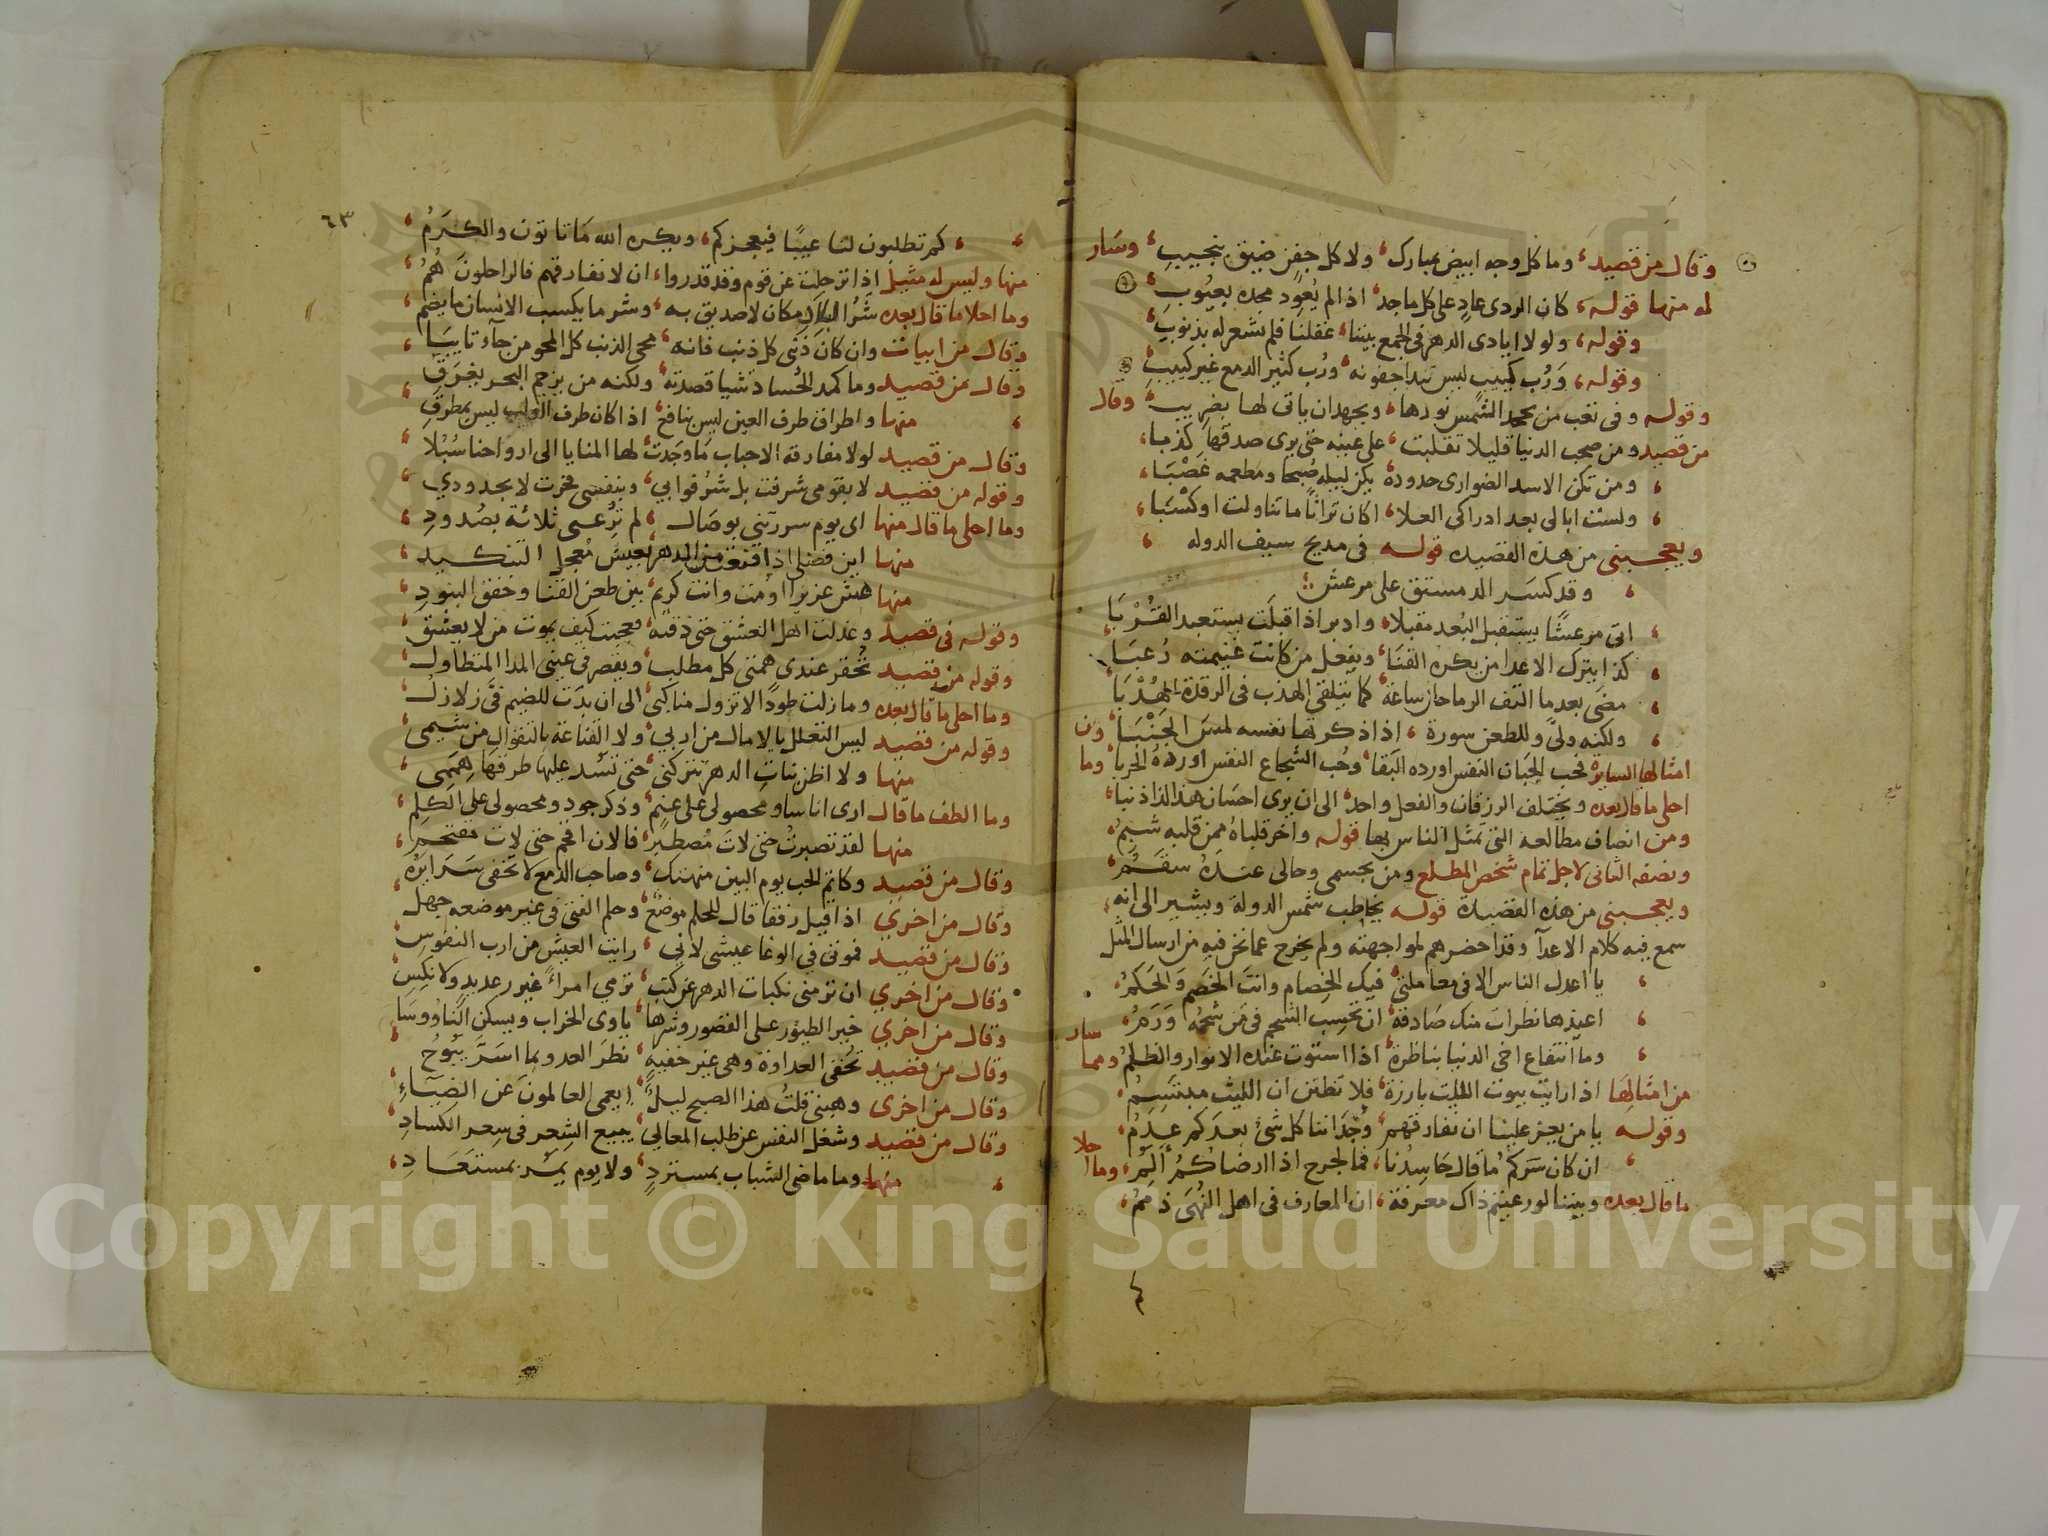 وقال من قصيد، وما كل وجه ابيض بمبارك، ولا كل جفن ضيق بنجيب، وسار
له منها قوله، كان الردى عادٍ على كل ماجد، اذا لم يُعوِّد مجده بعيُوب،
وقوله، ولولا ايادى الدهر فى الجمع بيننا، غفلنا فلم نشعر له بذنوب،
وقوله، ورُب كئيب ليس تندا جفونه، ورُب كثير الدمع غير كئيب،
وقوله وفى تعب من يحمد الشمس نورها، ويجهد ان ياتى لها بضريب، وقال
من قصيد ومن صحب الدنيا قليلا تقلبت، على عينه حتى يرى صدقها كذبا،
، ومن تكن الاسد الضوارى جدوده، يكن ليله صُبحا ومطعمه غَصْبَا،
، ولست ابالى بعد ادراكى العلا، اكان تراثًا ما تناولت او كسْبَا،
ويعجبنى من هذه القصيده قوله فى مديح سيف الدوله ،
، وقد كسَر الدمستق على مرعش
، اتى مرعشًا يستقبل البُعد مقبلا، وادبر اذ اقبلَت يستبعد القُرْبَا
، كذا يترك الاعدا من يكره القنَا، ويقفل من كانت غنيمته رُعبَا
، مضى بعد ما التف الرماحاز ساعة، كما يتلقى الهدب فى الرقدة الهُدْبَا
، ولكنه ولىَّ وللطعن سورة، اذا ذكرتها نفسه لمسَ الجَنْبَا، ومن
امثالها السايرة فحب الجبَان النفس اورده البَقا، وحُب الشجاع النفس اوردهُ الحربا، وما
احلى ما قال بعده ويختلف الرزقان والفعل واحد، الى ان يرى احسَان هذا لذا ذنبا،
ومن انصاف مطالعه التى تمثل الناس بها قوله واحر قلباهُ ممن قلبه شبِمُ،
ونصفه الثانى لاجل تمام شخص المطلع ومن بجسمى وحالى عندهُ سقَمُ،
ويعجبنى من هذه القصيدة قوله يخاطب شمس الدولة ويشير الى انه،
سمع فيه كلام الاعدآ وقد احضرهم لمواجهته ولم يخرج عما نحن فيه من ارسال المثل
، يا اعدل الناس الا فى معاملتى، فيك الخصام وانتَ الخصم وَالحَكمُ،
، اعيذها نظراتَ منك صَادقة، ان تحسِب الشحم فى من شحمُه وَرَمُ، سار
، وما انتفاع اخى الدنيا بناظره، اذا استوت عنده الانوار والظلمُ ومما
من امثالِها اذا رايت نيوبَ الليث بارزة، فلا تظنن ان الليث مبتسِمُ،
وقوله يا من يعز علينا ان نفارقهم، وُجداننا كل شئ بعدكم عدَمُ،
، ان كان سَركم ما قال حَاسِدُنا، فما لجرح اذا ارضاكُمُ ألَمُ، وما احلا
ما قال بعده وبيننا لو رعيتم ذاك معرفة، ان المعارف فى اهل النُهَى ذممُ،
٦٣
، كم تطلبون لنا عيبًا فيعجزكم، ويكره الله مَا تاتون والكرَمُ،
منها وليس له مثيل اذا ترحلت عن قوم وقد قدروا، ان لا تفارقهم فالراحلونَ هُمُ،
وما احلا ما قال بعده شَرُّ البلاد مكان لا صديق به، وشر ما يكسب الانسان ما يصم،
وقال من ابيات وان كانَ ذنبى كل ذنب فانه، محى الذنب كل المحو من جآء تايبَا،
وقال من قصيد وما كمد الحُساد شيا قصدته، ولكنه من يزحم البحر يغرَقِ،
، منها واطراق طرف العين ليس بنافع، اذا كان طرف القلب ليس بمطرقِ،
وقال من قصيد لولا مفارقة الاحباب مَا وجَدت، لها المنايا الى ارواحنا سُبُلا،
وقوله من قصيد لا بقومى شرفت بل شرُفوا بى، وبنفسى فخرت لا بجدودى،
وما احلى ما قال منها اى يوم سررتنى بوصَال، لم ترُعنى ثلاثة بصُدودِ،
منها اين فضلى اذا قنعت من الدهر، بعيش مُعجل التنكيد،
منها عش عزيزا او مت وانت كريم، بين طعن القنا وخفق البنودِ،
وقوله فى قصيد وعذلت اهل العشق حتى ذقته، فعجبت كيف يموت من لا يعشق،
وقوله من قصيد تُحقر عندى همتى كل مطلب، ويقصر فى عينى المدا المتطاول،
وما احلى ما قال بعده وما زلت طودًا لا تزول مناكبى، الى ان بدَت للضيم فىَّ زلازلُ،
وقوله من قصيد ليس التعلل بالامال من اربى، ولا القناعة بالاقلال من شيمى،
منها ولا اظن بناتِ الدهر تتركنى، حتى تسُد عليها طرقها هِمَمِى،
وما الطف ما قال ارى اناسا ومحصولى على غنم، وذكر جود ومحصولى على الكلِمِ،
منها لقد تصبرتُ حتى لاتَ مُصطبر، فالان اقحم حتى لات مقتحمِ،
وقال من قصيد وكاتم الحب يوم البين منهتك، وصاحب الدمع لا تخفى سَرَايرُه،
وقال من اخرى اذا قيل رفقا قال للحلم موضع، وحلم الفتى فى غير موضعه جهل،
وقال من قصيد فموتى فى الوغا عيشى لانى، رايت العيش من ارب النفوس،
وقال من اخرى ان ترمنى نكبات الدهر عن كثب، ترمى امراءً غير رعديد ولا نكِسِ،
وقال من اخرى خير الطيور على القصور وشرها، ياوى الخراب ويسكن النَاووسَا،
وقال من قصيد تخفى العداوة وهى غير خفيةٍ، نظرَ العدو بما اسَرَّ يَبُوحُ،
وقال من اخرى وهبنى قلتُ هذا الصبح ليلٌ، ايعمى العالمونَ عن الضيَآءِ،
وقال من قصيد وشغل النفس عن طلب المعالى، ببيع الشِعر فى سِعر الكسَادِ،
، منها وما ماضى الشباب بمستردٍ، ولا يوم يمُر بمستعَادِ،
Copyright © King Saud University